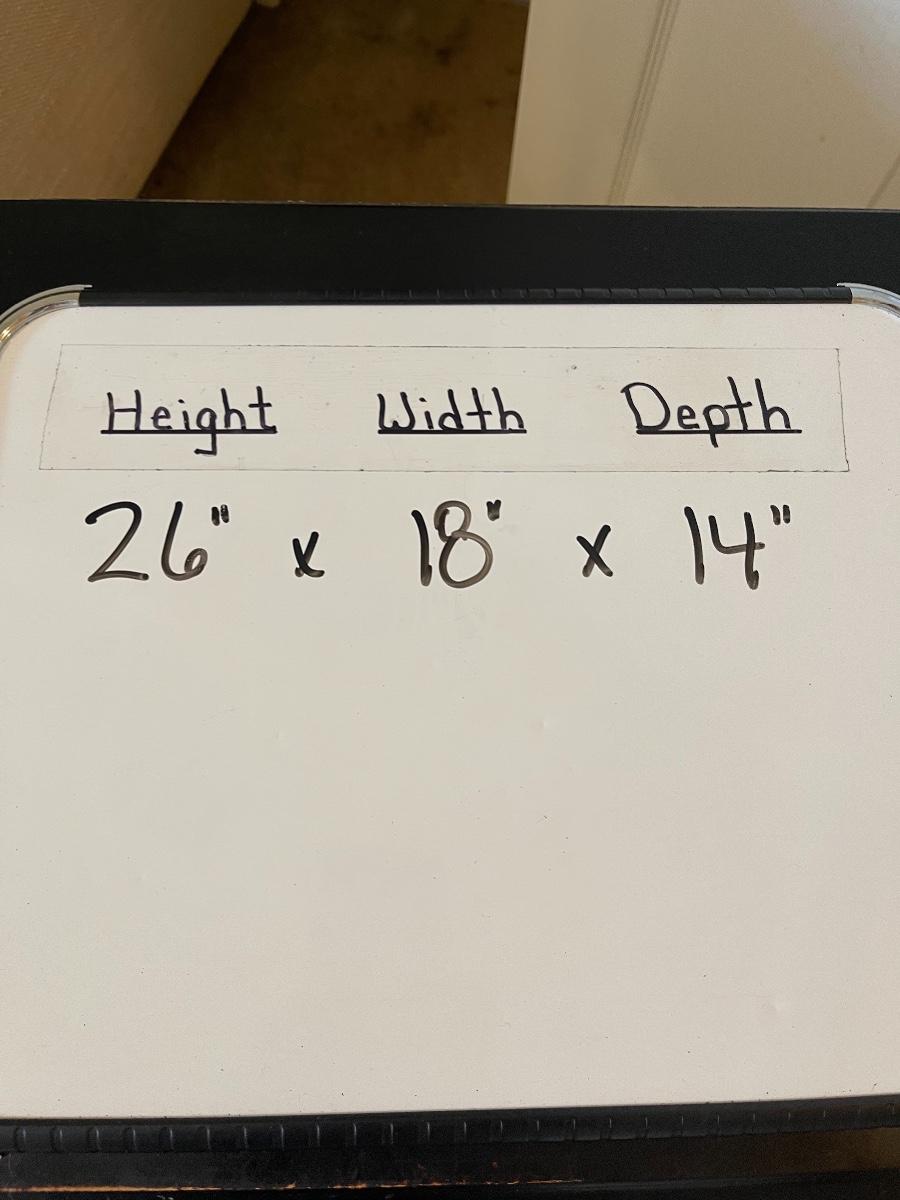 Height Width Depth
26" x 18" x 14"